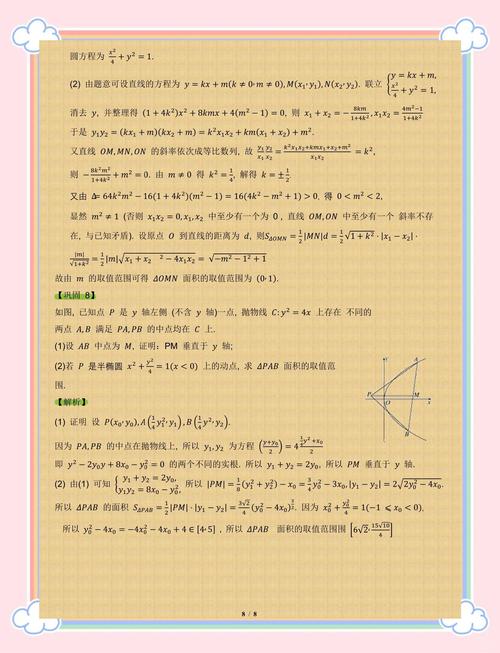 圆方程为 x²/4 + y² = 1.
(2) 由题意可设直线的方程为 y = kx + m(k ≠ 0·m ≠ 0),M(x₁·y₁),N(x₂·y₂). 联立 {y = kx + m, x²/4 + y² = 1,
消去 y, 并整理得 (1 + 4k²)x² + 8kmx + 4(m² − 1) = 0, 则 x₁ + x₂ = −8km/(1+4k²), x₁x₂ = (4m²−1)/(1+4k²)
于是 y₁y₂ = (kx₁ + m)(kx₂ + m) = k²x₁x₂ + km(x₁ + x₂) + m².
又直线 OM,MN,ON 的斜率依次成等比数列, 故 y₁/x₁ y₂/x₂ = (k²x₁x₂+kmx₁+x₂+m²)/(x₁x₂) = k²,
则 −8k²m²/(1+4k²) + m² = 0. 由 m ≠ 0 得 k² = 1/4, 解得 k = ±1/2.
又由 Δ= 64k²m² − 16(1 + 4k²)(m² − 1) = 16(4k² − m² + 1) > 0, 得 0 < m² < 2,
显然 m² ≠ 1 (否则 x₁x₂ = 0, x₁, x₂ 中至少有一个为 0 , 直线 OM,ON 中至少有一个 斜率不存
在, 与已知矛盾). 设原点 O 到直线的距离为 d, 则S△OMN = 1/2|MN|d = 1/2√(1 + k²) · |x₁ − x₂| ·
|m|/√(1+k²) = 1/2|m|√(x₁ + x₂ ² − 4x₁x₂) = √(−m² − 1² + 1)
故由 m 的取值范围可得 ΔOMN 面积的取值范围为 (0·1).
【巩固 8】
如图, 已知点 P 是 y 轴左侧 (不含 y 轴)一点, 抛物线 C:y² = 4x 上存在 不同的
两点 A,B 满足 PA,PB 的中点均在 C 上.
(1)设 AB 中点为 M, 证明: PM 垂直于 y 轴;
(2)若 P 是半椭圆 x² + y²/4 = 1(x < 0) 上的动点, 求 ΔPAB 面积的取值范
围.
y
A
P
O
M
x
B
【解析】
(1) 证明 设 P(x₀·y₀), A(1/4y₁²·y₁), B(1/4y²·y₂).
因为 PA,PB 的中点在抛物线上, 所以 y₁,y₂ 为方程 (y+y₀/2) = 4 (1/4y²+x₀)/2
即 y² − 2y₀y + 8x₀ − y₀² = 0 的两个不同的实根. 所以 y₁ + y₂ = 2y₀, 所以 PM 垂直于 y 轴.
(2) 由(1) 可知 {y₁ + y₂ = 2y₀, y₁y₂ = 8x₀ − y₀², 所以 |PM| = 1/8(y₁² + y₂²) − x₀ = 3/4y₀² − 3x₀, |y₁ − y₂| = 2√(2y₀² − 4x₀).
所以 ΔPAB 的面积 S△PAB = 1/2|PM| · |y₁ − y₂| = 3√2/4(y₀² − 4x₀)^(3/2). 因为 x₀² + y₀²/4 = 1(−1 ≤ x₀ < 0),
所以 y₀² − 4x₀ = −4x₀² − 4x₀ + 4 ∈ [4·5] , 所以 ΔPAB 面积的取值范围围 [6√2·15√10/4]
8 / 8